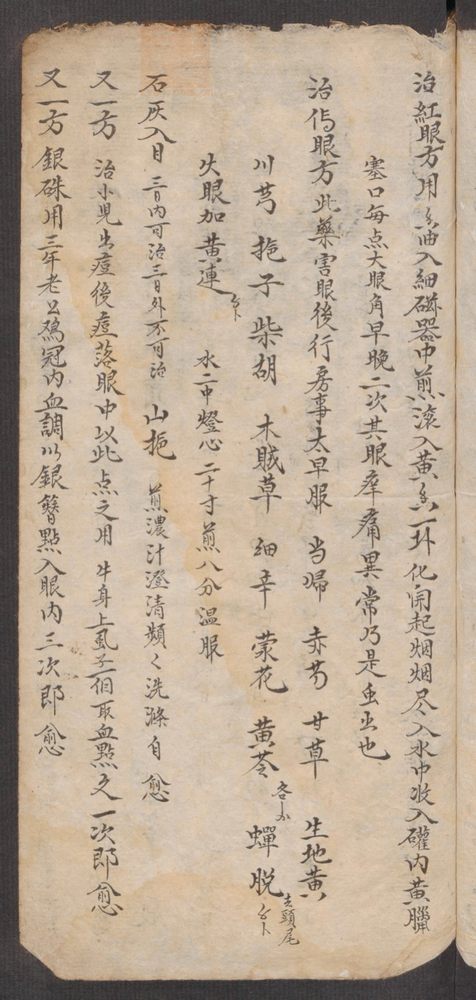 治紅眼方用香油入細磁器中煎滾入黃香一环化開起烟烟尽入水中收入礶内黃臘
塞口每点大眼角早晚二次其眼痒痛異常乃是虫出也
治伤眼方此藥害眼後行房事太早服 当帰 赤芍 甘草 生地黃
川芎 梔子 柴胡 木賊草 細辛 蒙花 黃芩 各 蟬脱 去頭尾
火眼加黃連 水二中 燈心二十寸 煎八分温服
石灰入目 三日内可治三日外不可治 山梔 煎濃汁澄清頻々洗滌自愈
又一方 治小児出痘後痘落眼中以此点之用 牛身上虱子一個取血點之一次即愈
又一方 銀硃用三年老公鷄冠内血調以銀簪點入眼内三次即愈